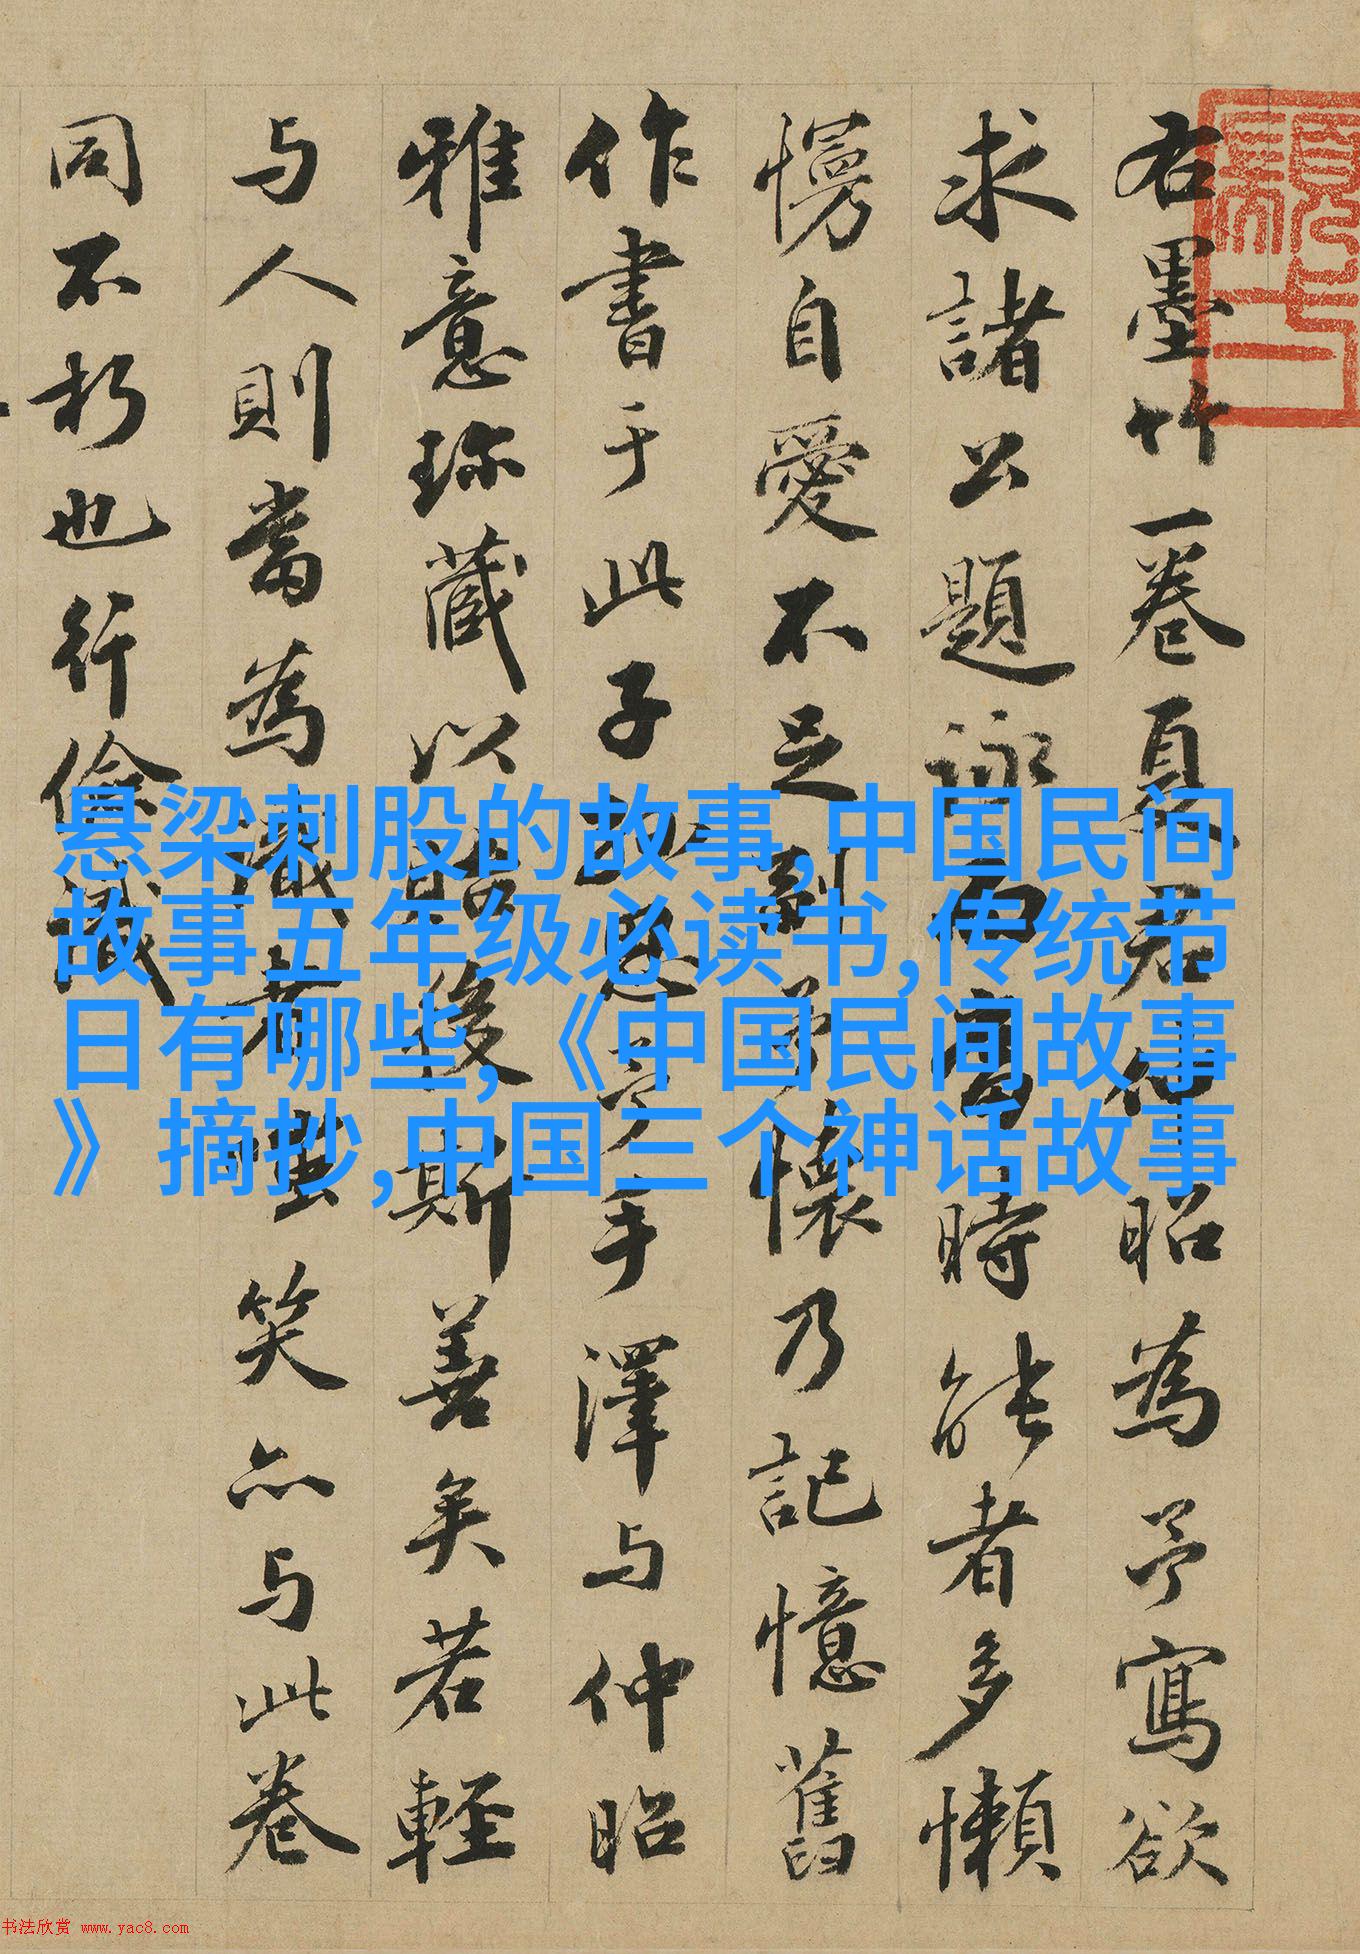 右墨竹一卷夏君仲昭為予寫欲
求諸公題詠而當時能者多懶
慢自愛不足副予懷乃記憶舊
作書于此子手澤与仲昭
雅意珎藏以詒後斯善矣若輕
与人則當為識者嗤笑亦与此卷
同不朽也行儉識
悬梁刺股的故事,中国民间
故事五年级必读书,传统节
日有哪些,《中国民间故事
》摘抄,中国三个神话故事
书法欣赏 www.yac8.com